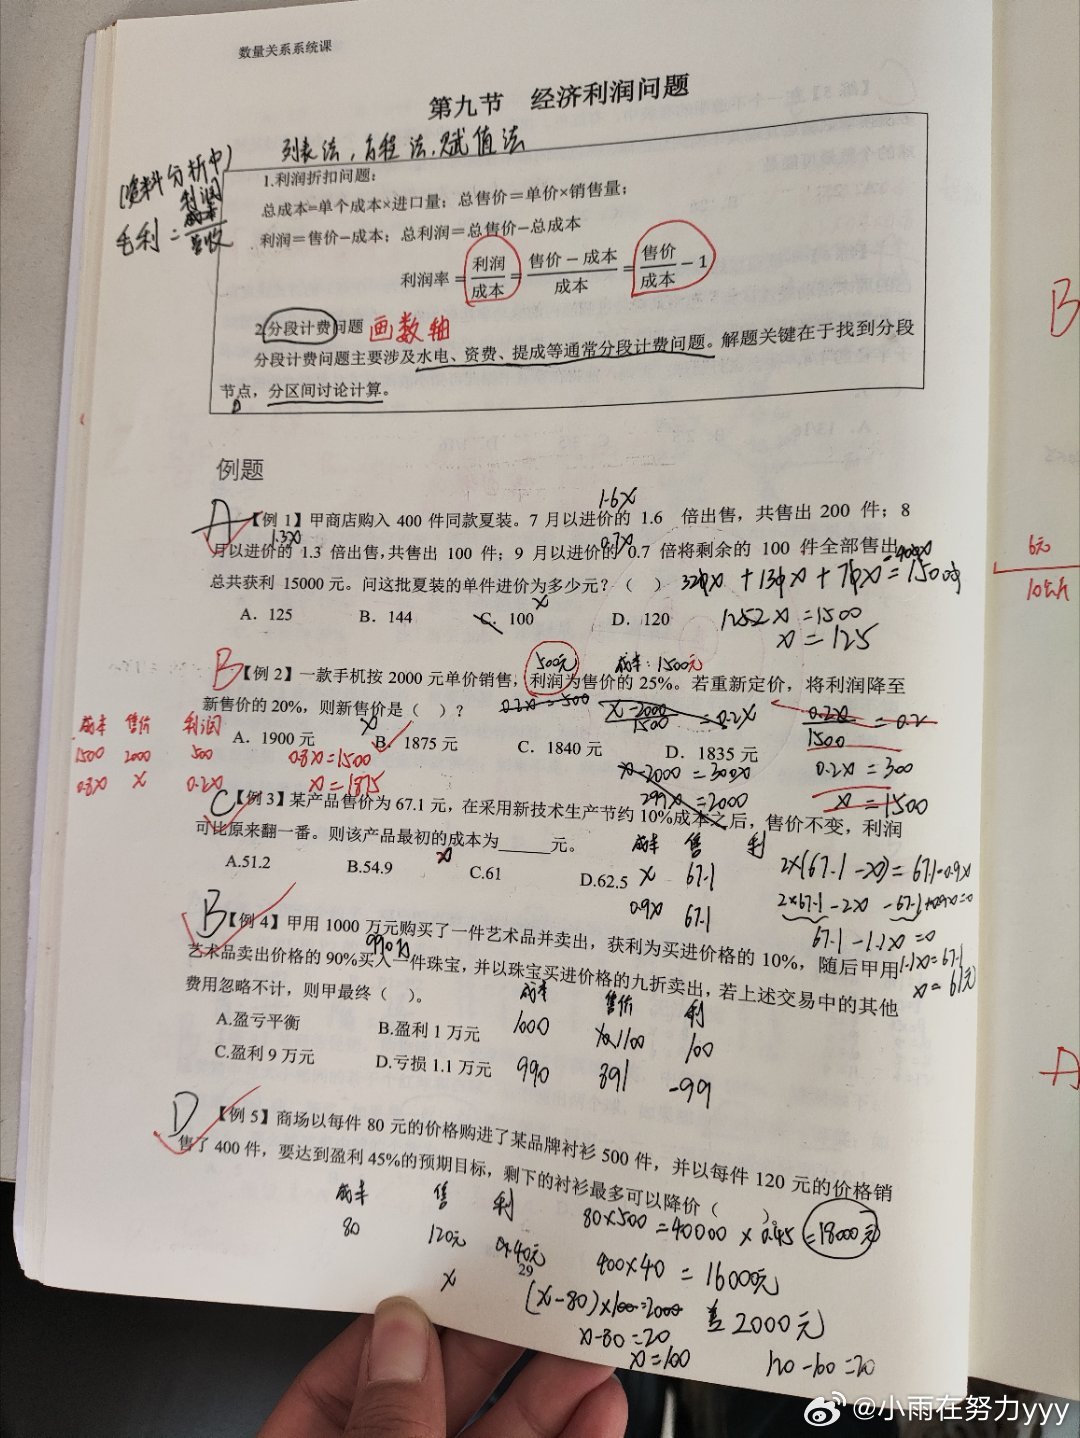 数量关系系统课
第九节 经济利润问题
列表法,方程法,赋值法
(资料分析中)
毛利=
1.利润折扣问题:
总成本=单个成本×进口量;总售价=单价×销售量;
利润=售价-成本;总利润=总售价-总成本
利润率=利润/成本=售价-成本/成本=售价/成本-1
2.分段计费问题 画数轴
分段计费问题主要涉及水电、资费、提成等通常分段计费问题。解题关键在于找到分段
节点,分区间讨论计算。
例题
1.6x
A【例 1】甲商店购入 400 件同款夏装。7 月以进价的 1.6 倍出售,共售出 200 件;8
1.3x 0.7x
月以进价的 1.3 倍出售,共售出 100 件;9 月以进价的 0.7 倍将剩余的 100 件全部售出,
总共获利 15000 元。问这批夏装的单件进价为多少元?( )
A. 125 B. 144 C. 100 D. 120
x=125
500元 成本:1500元
B【例 2】一款手机按 2000 元单价销售,利润为售价的 25%。若重新定价,将利润降至
新售价的 20%,则新售价是( )?
0.2x=500
A. 1900 元 B. 1875 元 C. 1840 元 D. 1835 元
成本 售价 利润
1500 2000 500
0.8x x 0.2x
0.8x=1500
x=1875
x-2000/1500=0.2x
x-2000=300x
299x=2000
0.2x/1500=0.2
0.2x=300
x=1500
C【例 3】某产品售价为 67.1 元,在采用新技术生产节约 10%成本之后,售价不变,利润
可比原来翻一番。则该产品最初的成本为______元。
A.51.2 B.54.9 C.61 D.62.5
成本 售 利
x 67.1
0.9x 67.1
2×(67.1-x)=67.1-0.9x
2×67.1-2x-67.1+0.9x=0
67.1-1.1x=0
1.1x=67.1
x=61元
B【例 4】甲用 1000 万元购买了一件艺术品并卖出,获利为买进价格的 10%,随后甲用
990万
艺术品卖出价格的 90%买入一件珠宝,并以珠宝买进价格的九折卖出,若上述交易中的其他
费用忽略不计,则甲最终( )。
A.盈亏平衡 B.盈利 1 万元
C.盈利 9 万元 D.亏损 1.1 万元
成本 售价 利
1000 1100 100
990 891 -99
D【例 5】商场以每件 80 元的价格购进了某品牌衬衫 500 件,并以每件 120 元的价格销
售了 400 件,要达到盈利 45%的预期目标,剩下的衬衫最多可以降价( )
成本 售 利
80 120元 40元
x
80×500=40000×0.45=18000元
400×40=16000元
(x-80)×100=2000 差2000元
x-80=20
x=100
29
B
6元
A
@小雨在努力yyy